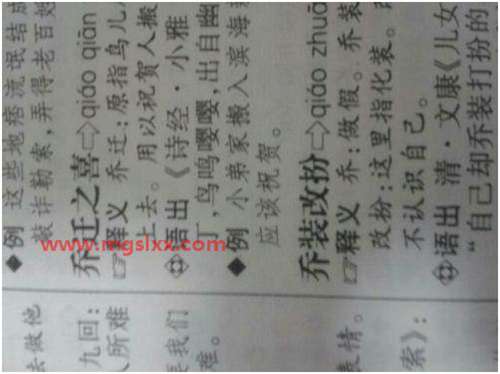 ◆例 这些地痞流氓结成
敲诈勒索，弄得老百姓
乔迁之喜⇨qiáo qiān
☞释义 乔迁：原指鸟儿
上去。用以祝贺人搬
语出 《诗经·小雅
丁，鸟鸣嘤嘤，出自幽
◆例 小弟家搬入滨海
应该祝贺。
乔装改扮⇨qiáo zhuā
☞释义 乔：做假。乔装
改扮：这里指化装。
不认识自己。
语出 清·文康《儿女
“自己却乔装打扮的
去做他
九回：
人所难
要我们
难。
表情。
索》：
www.mgslxx.com